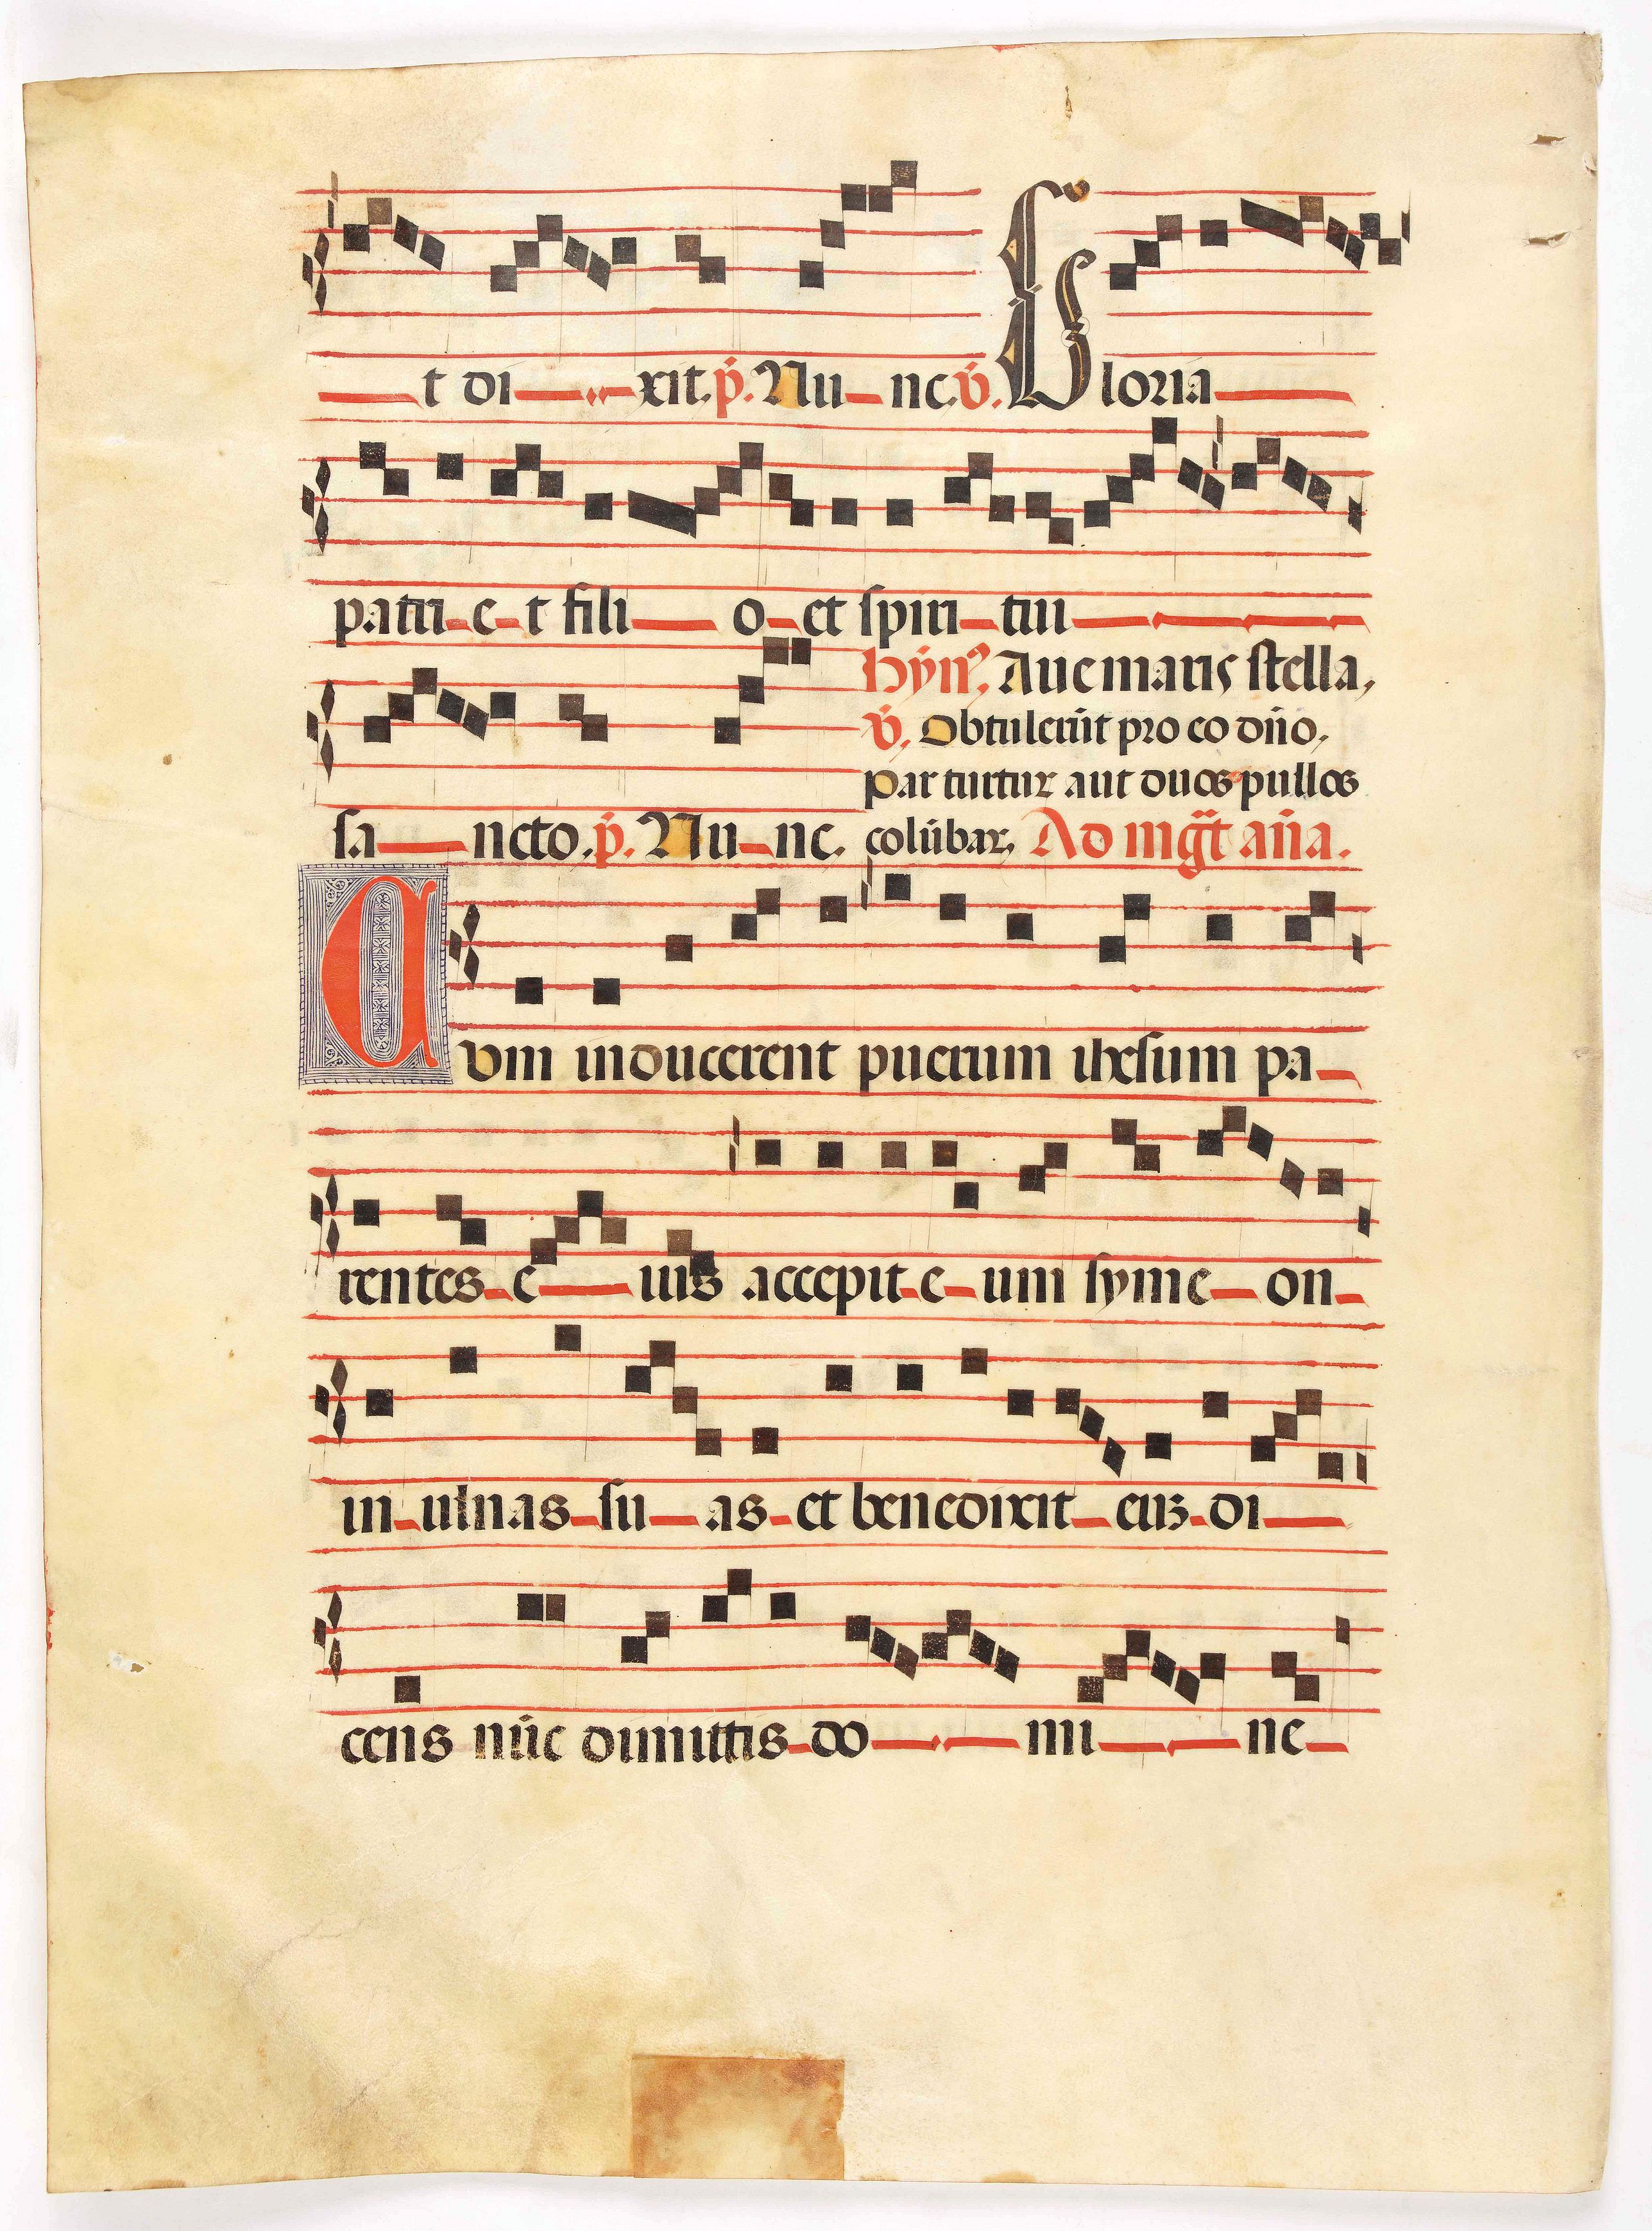 t di xit. p̄. Nu nc. v̄. Gloria
patri e t fili o et spiri tui
Hÿn⁹. Aue maris stella,
v̄. Obtulerūt pro eo dn̄o,
par turtur aut duos pullos
sa ncto. p̄. Nu nc. colūbaꝝ, Ad mḡt an̄a.
Cvm inducerent puerum ihesum pa
rentes e iuis accepit e um syme on
in ulnas su as et benedixit euʒ di
cens nūc dimittis do mi ne